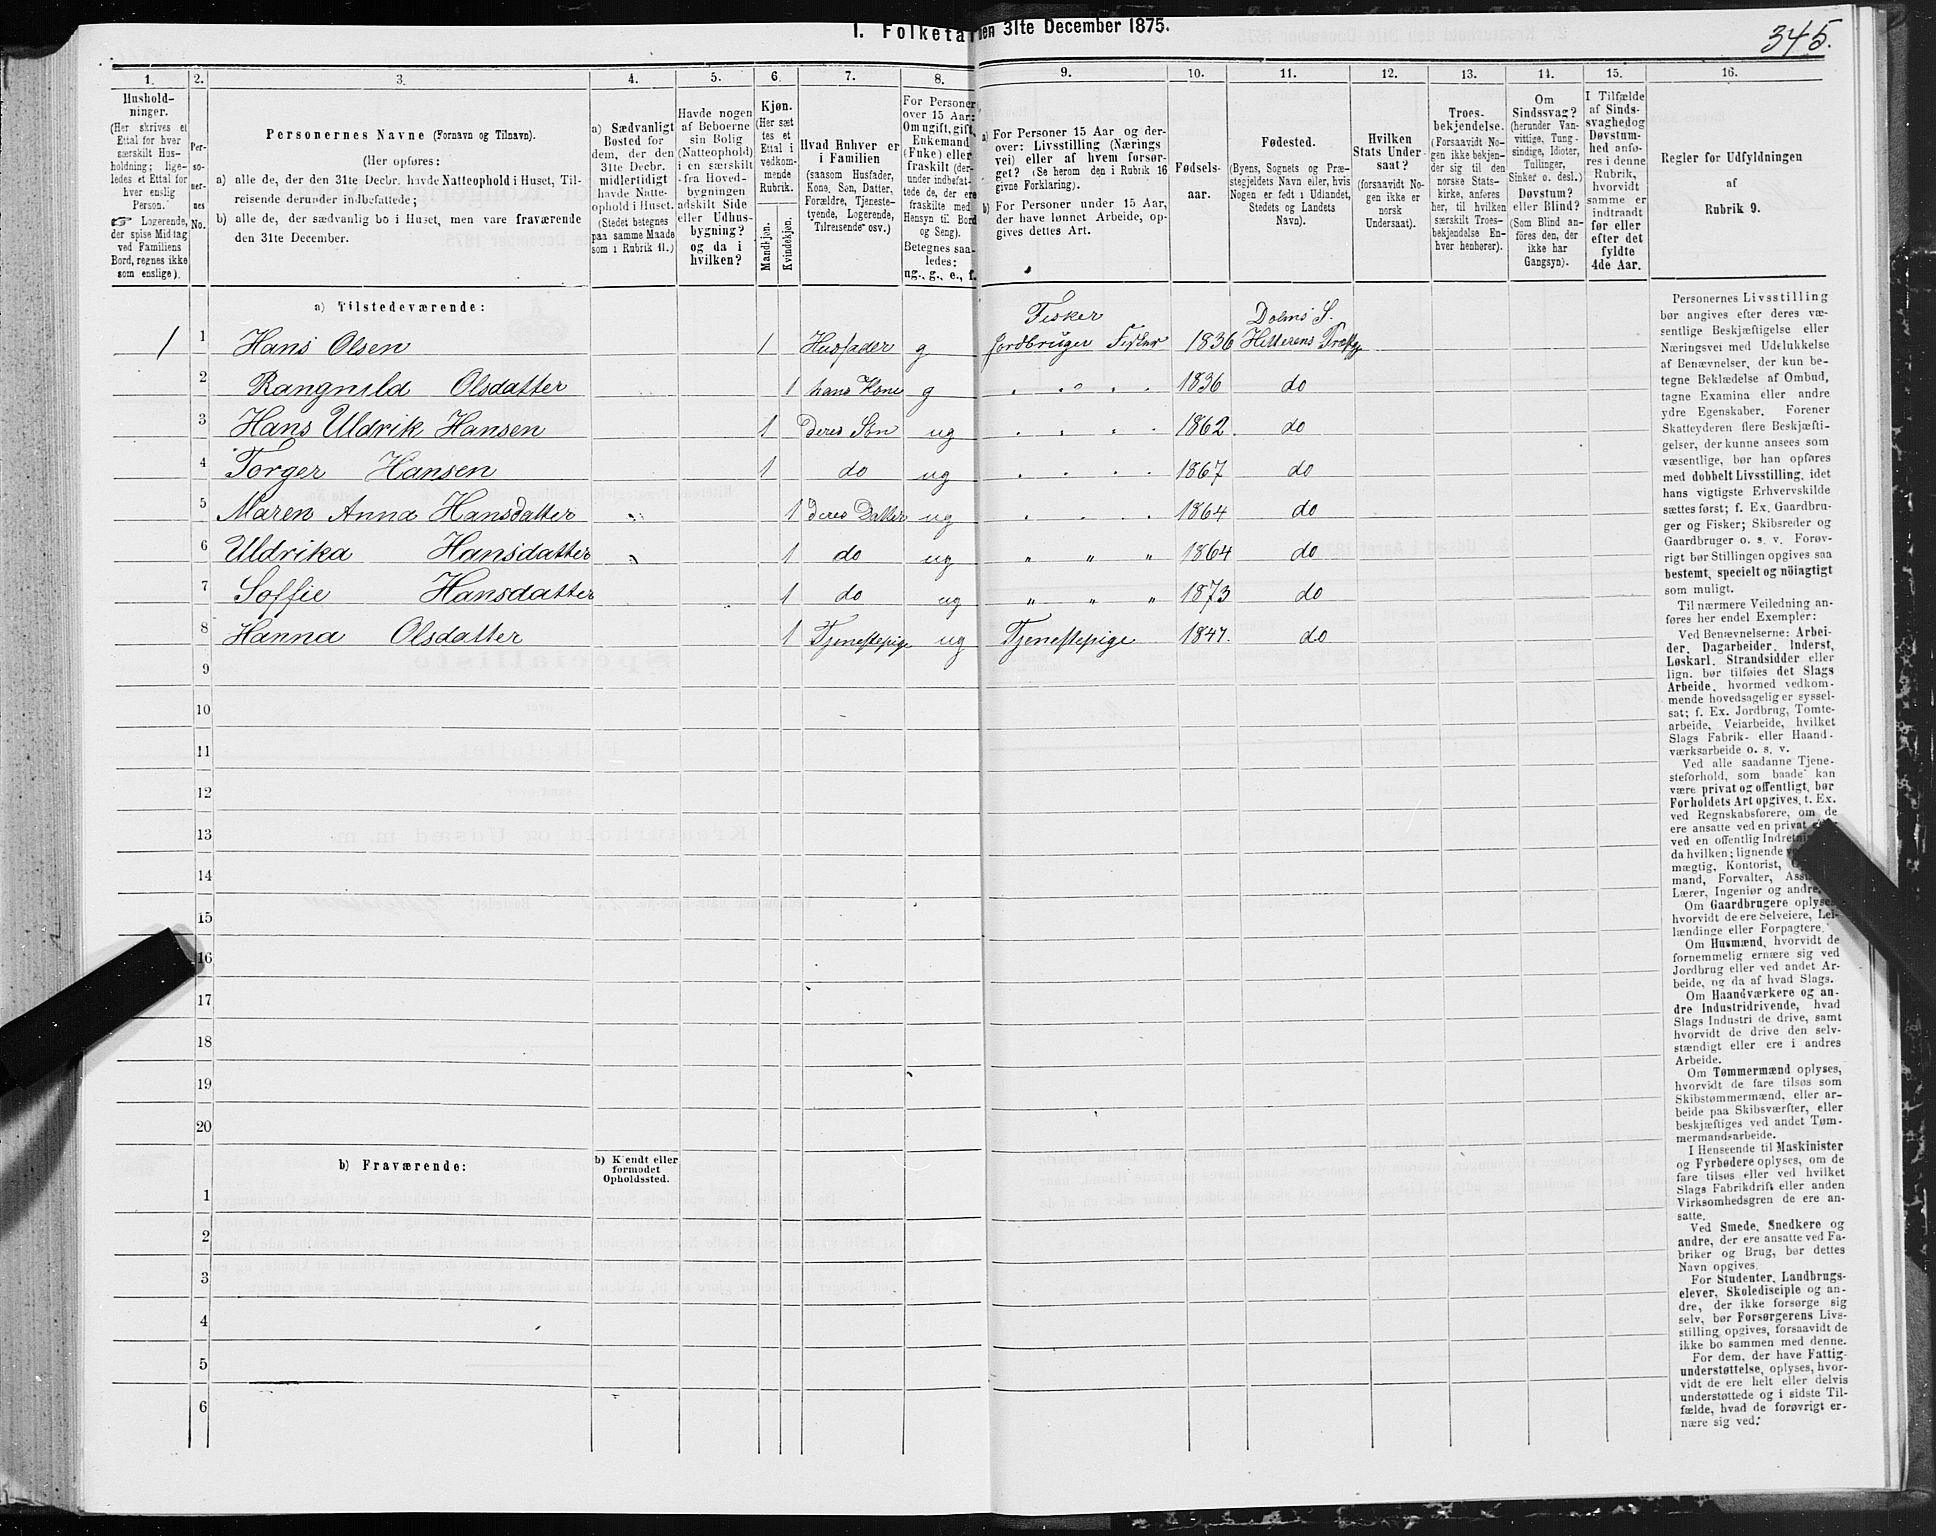 1. Folketal den 31te December 1875.
345.
1. 2. 3. 4. 5. 6. 7. 8. 9. 10. 11. 12. 13. 14. 15. 16.
Hushold-
ninger.
(Her skrives et
Ettal for hver
særskilt Hus-
holdning; lige-
ledes et Ettal for
hver enslig
Person.
☞ Logerende,
der spise Middag
ved Familiens
Bord, regnes ikke
som enslige).
Per-
so-
ner-
nes
No.
Personernes Navne (Fornavn og Tilnavn).
(Her opføres:
a) alle de, der den 31te Decbr. havde Natteophold i Huset, Til-
reisende derunder indbefattede;
b) alle de, der sædvanlig bo i Huset, men vare fraværende
den 31te December.
a) Sædvanligt
Bosted for
dem, der den
31te Decbr.
midlertidigt
havde Natte-
ophold i Huset.
(Stedet betegnes
paa samme Maade
som i Rubrik 11.)
Havde nogen
af Beboerne
sin Bolig
(Natteophold)
i en særskilt
fra Hoved-
bygningen
adskilt Side
eller Udhus-
bygning?
og da i
hvilken?
Kjøn.
(Her sæt
tes et
Ettal i
vedkom-
mende
Rubrik.
Mandkjøn.
Kvindekjøn.
Hvad Enhver er
i Familien
(saasom Husfader,
Kone, Søn, Datter,
Forældre, Tjeneste-
tyende, Logerende,
Tilreisende osv.)
For Personer
over 15 Aar:
Om ugift, gift,
Enkemand
(Enke) eller
fraskilt (der-
under indbefat-
tede de, der ere
fraskilte med
Hensyn til Bord
og Seng).
Betegnes saa-
ledes:
ug., g., e., f.
a) For Personer 15 Aar og der-
over: Livsstilling (Nærings
vei) eller af hvem forsør-
get? (Se herom den i Rubrik 16
givne Forklaring).
b) For Personer under 15 Aar,
der have lønnet Arbeide, op-
gives dettes Art.
Fødsels-
aar.
Fødested.
(Byens, Sognets og Præ-
stegjeldets Navn eller, hvis
Nogen er født i Udlandet,
Stedets og Landets
Navn).
Hvilken
Stats Under
saat?
(forsaavidt No-
gen ikke er
norsk
Undersaat).
Troes-
bekjendelse.
(Forsaavidt No-
gen ikke bekjen-
der sig til den
norske Stats-
kirke, anføres
her, til hvilken
særskilt Troes-
bekjendelse En-
hver henhører).
Om
Sindssvag?
(herunder Van-
vittige, Tung-
sindige, Idioter,
Tullinger,
Sinker o. desl.)
Døvstum?
eller Blind?
(Som Blind an-
føres den, der
ikke har
Gangsyn).
I Tilfælde
af Sinds-
svaghed og
Døvstum-
hed anfø-
res i denne
Rubrik,
hvorvidt
samme er
indtraadt
før eller
efter det
fyldte
4de Aar.
Regler for Udfyldningen
af
Rubrik 9.
a) Tilstedeværende:
Fisker Dolms S.
1 1 Hans Olsen 1 Husfader g Jordbruger Fisker 1836 Hitterens Præstg
2 Rangnild Olsdatter 1 hans Kone g 1836 do
3 Hans Uldrik Hansen 1 Deres Søn ug 1862 do
4 Torger Hansen 1 do ug 1867 do
5 Maren Anna Hansdatter 1 Deres Datter ug 1864 do
6 Uldrika Hansdatter 1 do ug " " " 1864 do
7 Soffie Hansdatter 1 do ug " " " 1873 do
8 Hanna Olsdatter 1 Tjenestepige ug Tjenestepige 1847. do
9
10
11
12
13
14
15
16
17
18
19
20
b) Fraværende:
b) Kjendt eller
formodet
Opholdssted.
1
2
3
4
5
6
Personernes Livsstilling
bør angives efter deres væ-
sentlige Beskjæftigelse eller
Næringsvei med Udelukkelse
af Benævnelser, der kun be-
tegne Beklædelse af Ombud,
tagne Examina eller andre
ydre Egenskaber. Forener
Skatteyderen flere Beskjæfti-
gelser, der kunne ansees som
væsentlige, bør han opføres
med dobbelt Livsstilling, idet
hans vigtigste Erhvervskilde
sættes først; f. Ex. Gaardbru-
ger og Fisker; Skibsreder og
Gaardbruger o. s. v. Forøv-
rigt bør Stillingen opgives saa
bestemt, specielt og nöiagtigt
som muligt.
Til nærmere Veiledning an-
føres her endel Exempler:
Ved Benævnelserne: Arbei-
der, Dagarbeider, Inderst,
Løskarl, Strandsidder eller
lign. bør tilføies det Slags
Arbeide, hvormed vedkom-
mende hovedsagelig er syssel-
sat; f. Ex. Jordbrug, Tomte-
arbeide, Veiarbeide, hvilket
Slags Fabrik- eller Haand-
værksarbeide o. s. v.
Ved alle saadanne Tjene-
steforhold, som baade kan
være privat og offentligt, bør
Forholdets Art opgives, t. Ex.
ved Regnskabsførere, om de
ere ansatte ved en privat
ved en offentlig
da hvilken; lignende
mægtig, Kontorist,
mand, Forvalter,
Lærer, Ingeniør og andre.
Om Gaardbrugere oplyses,
hvorvidt de ere Selveiere, Lei-
lændinge eller Forpagtere.
Om Husmænd, hvorvidt de
fornemmelig ernære sig ved
Jordbrug eller ved andet Ar-
beide, og da af hvad Slags.
Om Haandværkere og an-
dre Industridrivende, hvad
Slags Industri de drive, samt
hvorvidt de drive den selv-
stændigt eller ere i andres
Arbeide.
Om Tømmermænd oplyses,
hvorvidt de fare tilsøs som
Skibstømmermænd, eller ar-
beide paa Skibsværfter, eller
beskjæftiges ved andet Tøm-
mermandsarbeide.
I Henseende til Maskinister
og Fyrbødere oplyses, om de
fare tilsøs eller ved hvilket
Slags Fabrikdrift eller anden
Virksomhedsgren de ere an-
satte.
Ved Smede, Snedkere og
andre, der ere ansatte ved Fa-
briker og Brug, bør dettes
Navn opgives.
For Studenter, Landbrugs-
elever, Skoledisciple og an-
dre, der ikke forsørge sig
selv, bør Forsørgerens Livs-
stilling opgives, forsaavidt de
ikke bo sammen med denne.
For dem, der have Fattig-
understøttelse, oplyses, hvor-
vidt de ere helt eller delvis
understøttede og i sidste Til-
fælde, hvad de forøvrigt er-
nære sig ved.